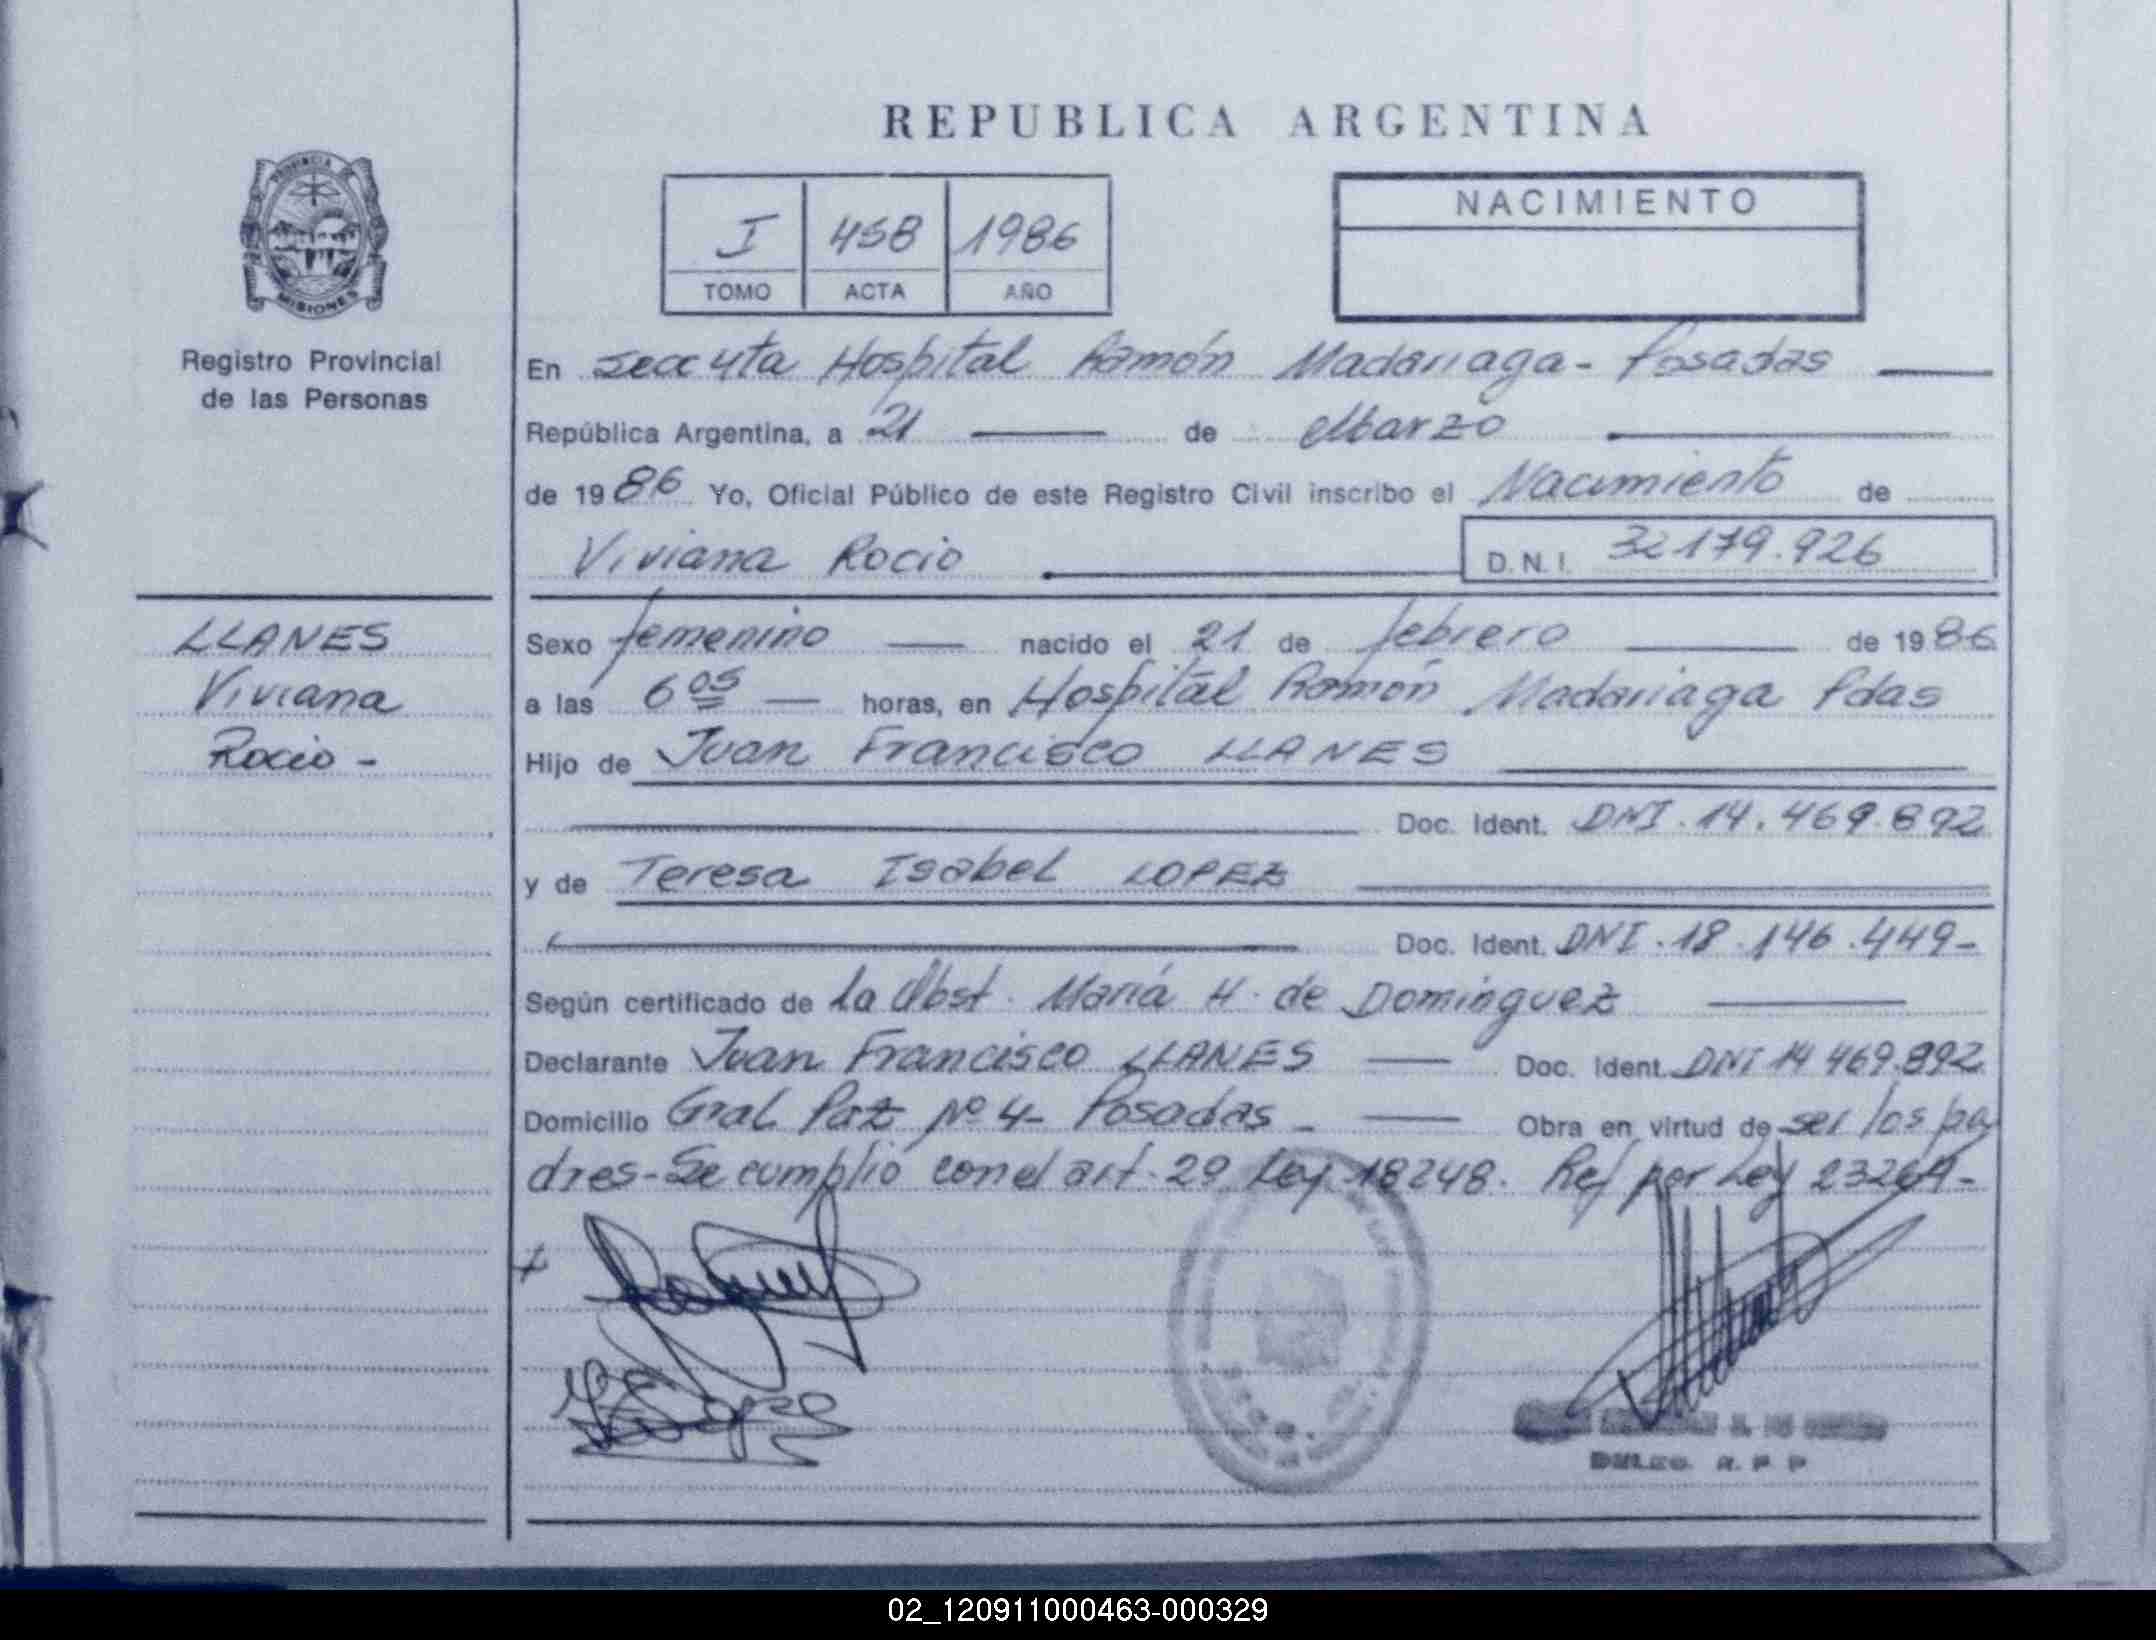 REPUBLICA ARGENTINA
PROVINCIA DE
MISIONES
Registro Provincial
de las Personas
I 458 1986
TOMO ACTA AÑO
NACIMIENTO
En Secc 4ta Hospital Ramón Madariaga - Posadas
República Argentina, a 21 de Marzo
de 1986 Yo, Oficial Público de este Registro Civil inscribo el Nacimiento de
Viviana Rocio D.N.I. 32179.926
LLANES
Viviana
Rocio -
Sexo femenino nacido el 21 de febrero de 1986
a las 6 05 horas, en Hospital Ramón Madariaga Pdas
Hijo de Juan Francisco LLANES
Doc. Ident. DNI. 14.469.892
y de Teresa Isabel LOPEZ
Doc. Ident. DNI. 18.146.449-
Según certificado de La Obst. María H. de Dominguez
Declarante Juan Francisco LLANES Doc. Ident. DNI 14 469.892
Domicilio Gral Paz Nº 4- Posadas - Obra en virtud de ser los pa
dres-Se cumplió con el art. 29 Ley 18248. Ref por Ley 23264-
R. P. P
02_120911000463-000329